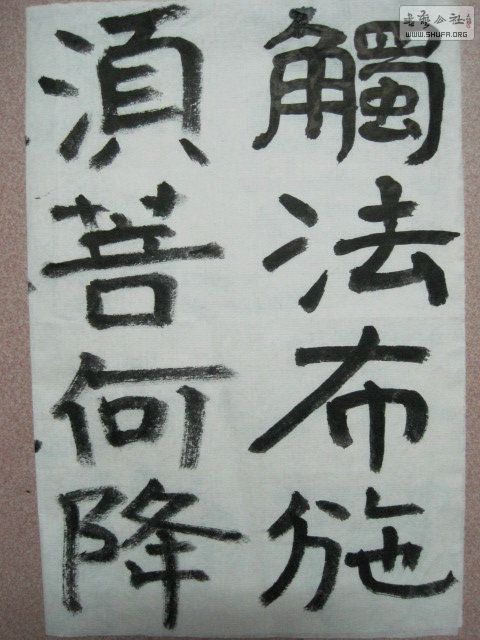 觸法布施
須菩何降
書法公社
WWW.SHUFA.ORG